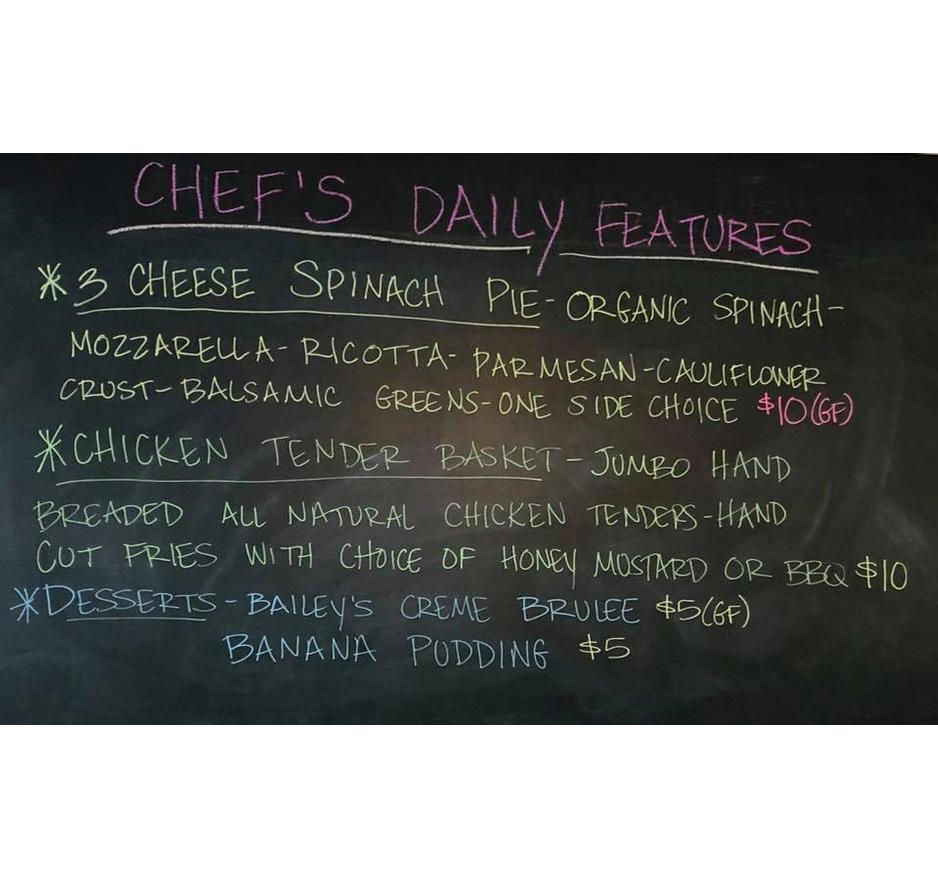 CHEF'S DAILY FEATURES
* 3 CHEESE SPINACH PIE - ORGANIC SPINACH -
MOZZARELLA - RICOTTA - PARMESAN - CAULIFLOWER
CRUST - BALSAMIC GREENS - ONE SIDE CHOICE $10 (GF)
* CHICKEN TENDER BASKET - JUMBO HAND
BREADED ALL NATURAL CHICKEN TENDERS - HAND
CUT FRIES WITH CHOICE OF HONEY MUSTARD OR BBQ $10
* DESSERTS - BAILEY'S CREME BRULEE $5 (GF)
BANANA PUDDING $5